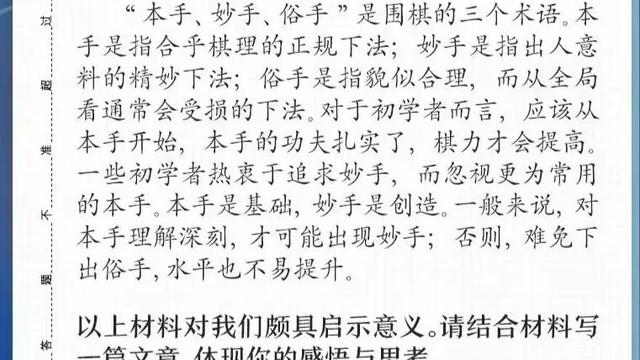 “本手、妙手、俗手”是围棋的三个术语。本
手是指合乎棋理的正规下法；妙手是指出人意
料的精妙下法；俗手是指貌似合理，而从全局
看通常会受损的下法。对于初学者而言，应该从
本手开始，本手的功夫扎实了，棋力才会提高。
一些初学者热衷于追求妙手，而忽视更为常用
的本手。本手是基础，妙手是创造。一般来说，对
本手理解深刻，才可能出现妙手；否则，难免下
出俗手，水平也不易提升。
以上材料对我们颇具启示意义。请结合材料写
一篇文章，体现你的感悟与思考
过
超
准
不
题
答